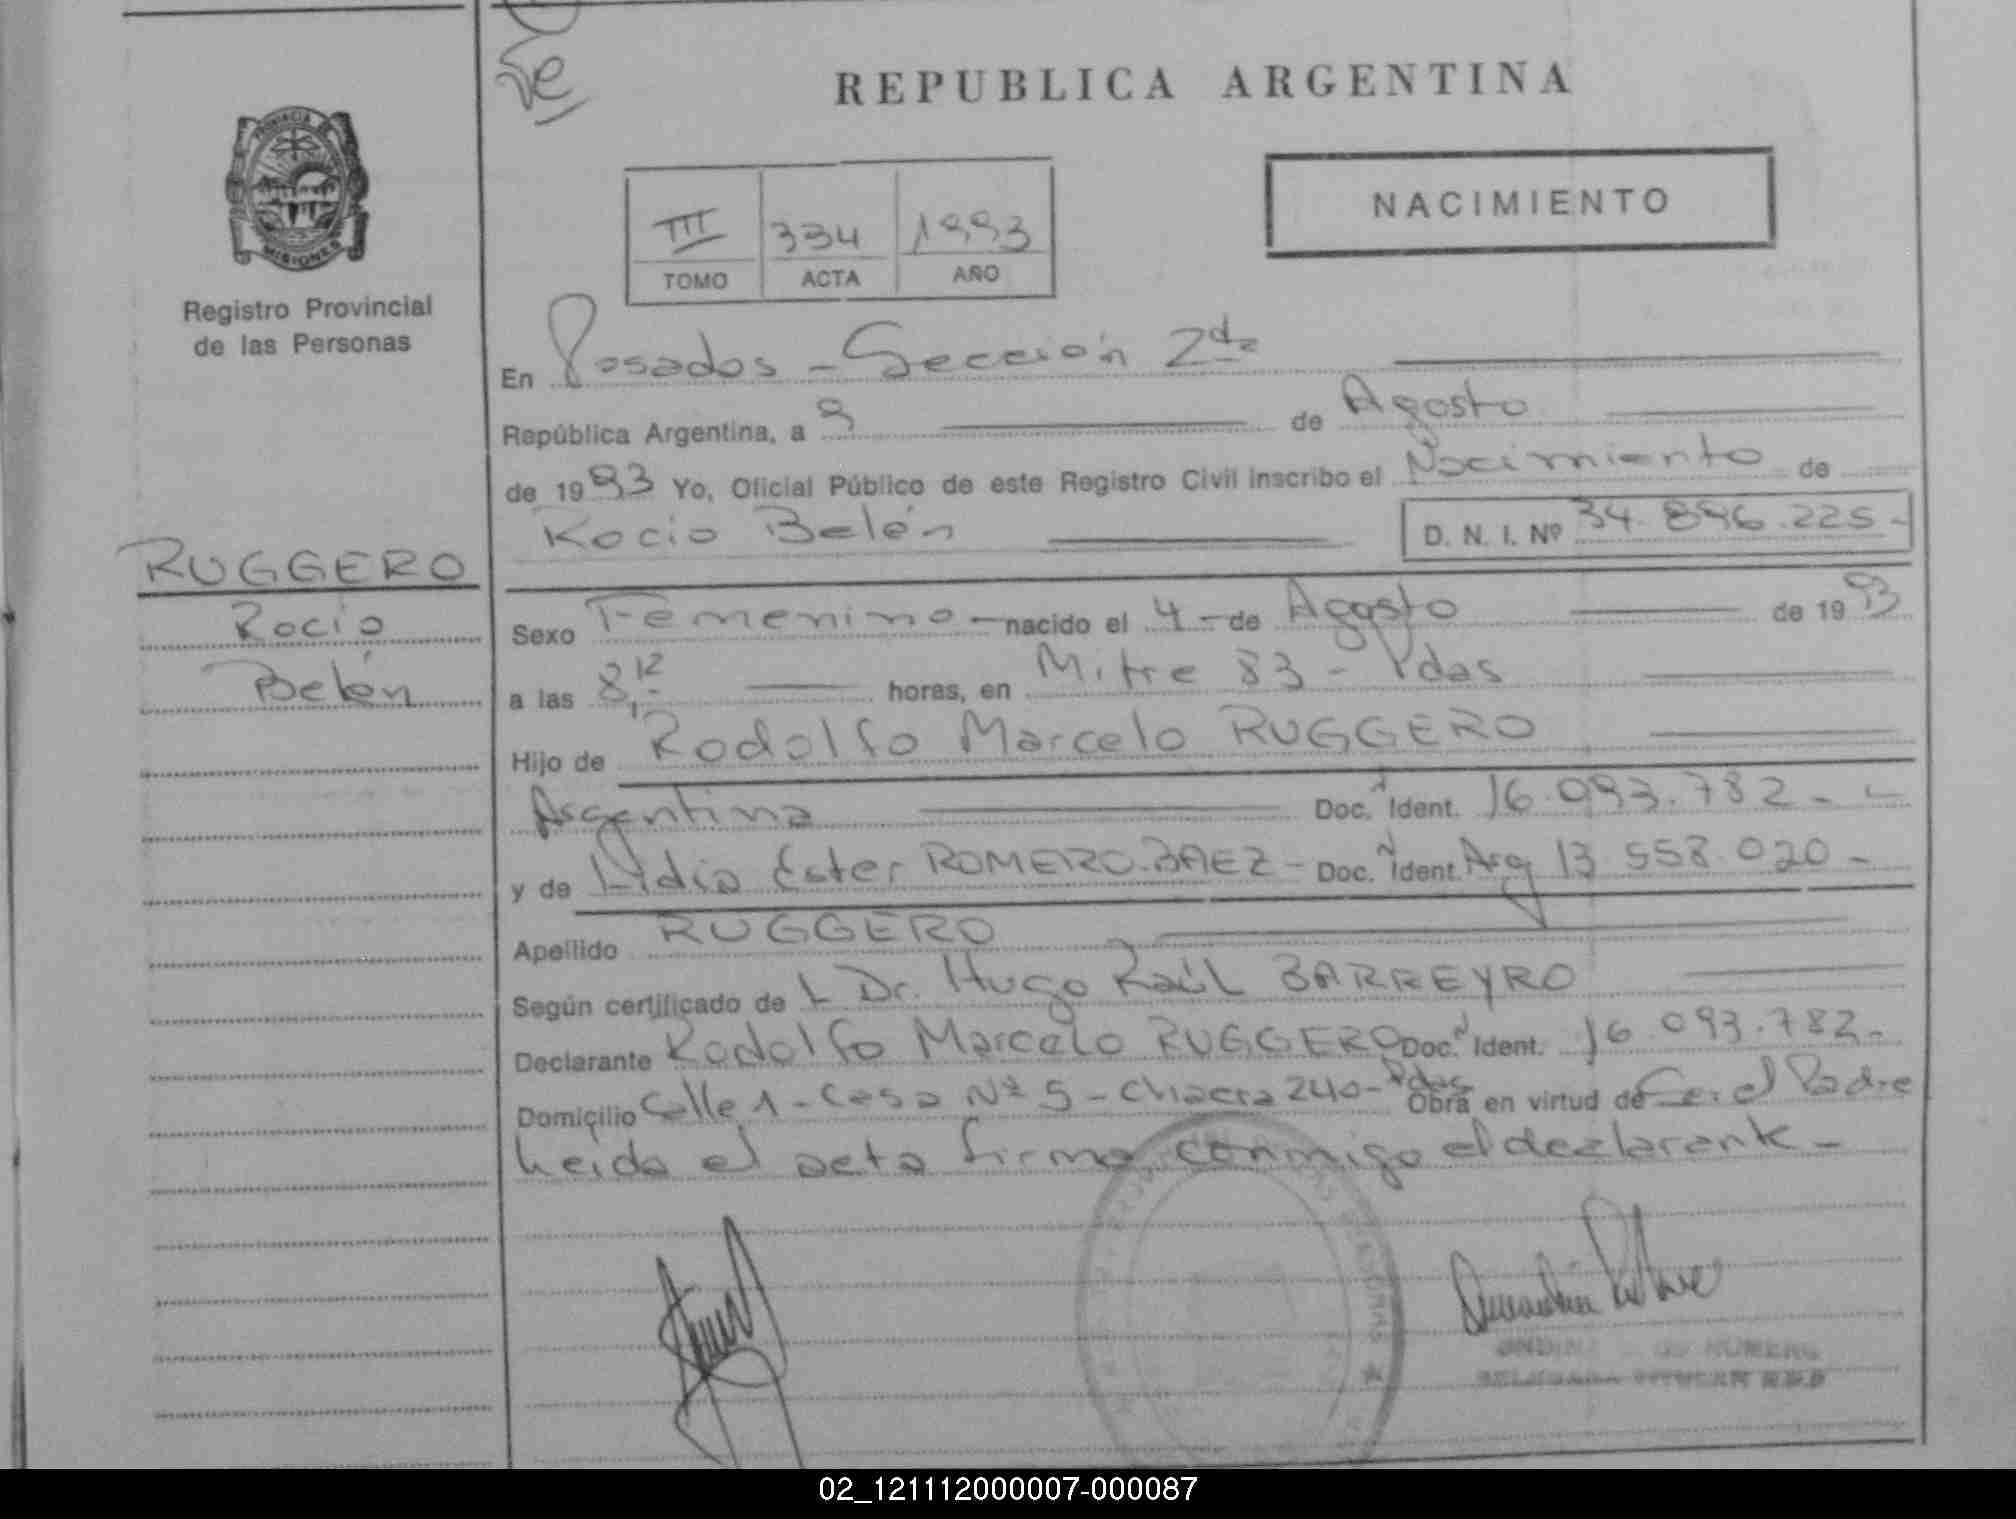 REPUBLICA ARGENTINA
PROVINCIA DE
MISIONES
Registro Provincial
de las Personas
NACIMIENTO
III 334 1993
TOMO ACTA AÑO
En Posadas - Sección 2da
República Argentina, a 9 de Agosto
de 1993 Yo, Oficial Público de este Registro Civil inscribo el Nacimiento de
Rocio Belén D. N. I. Nº 34.896.225-
RUGGERO
Rocio
Belén
Sexo Femenino - nacido el 4 - de Agosto de 1993
a las 8,12 horas, en Mitre 83 - Pdas
Hijo de Rodolfo Marcelo RUGGERO
Argentina Doc. Ident. 16.093.782 -
y de Lidia Ester ROMERO.BAEZ - Doc. Ident. Arg 13.558.020 -
Apellido RUGGERO
Según certificado de L Dr. Hugo Raúl BARREYRO
Declarante Rodolfo Marcelo RUGGERO Doc. Ident. 16.093.782-
Domicilio Calle 1 - Casa Nº 5 - Chacra 240 - Pdas Obra en virtud de Ser el Padre
Leida el acta firma conmigo el declarante -
02_121112000007-000087